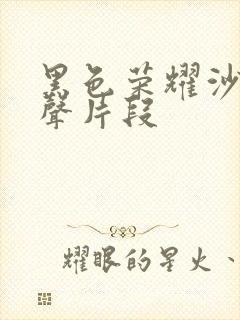 黑色荣耀沙
聲片段
耀眼的星火、